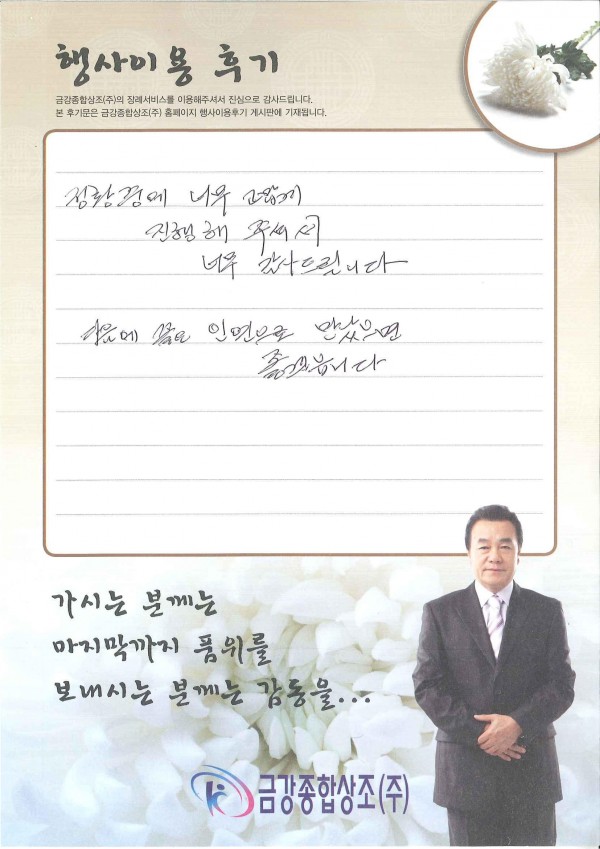 행사이용 후기
금강종합상조(주)의 장례서비스를 이용해주셔서 진심으로 감사드립니다.
본 후기문은 금강종합상조(주) 홈페이지 행사이용후기 게시판에 기재됩니다.
정황경에 너무 고맙게
진행해 주셔서
너무 감사드립니다
다음에 인연으로 만났으면
좋겠습니다
가시는 분께는
마지막까지 품위를
보내시는 분께는 감동을...
금강종합상조(주)